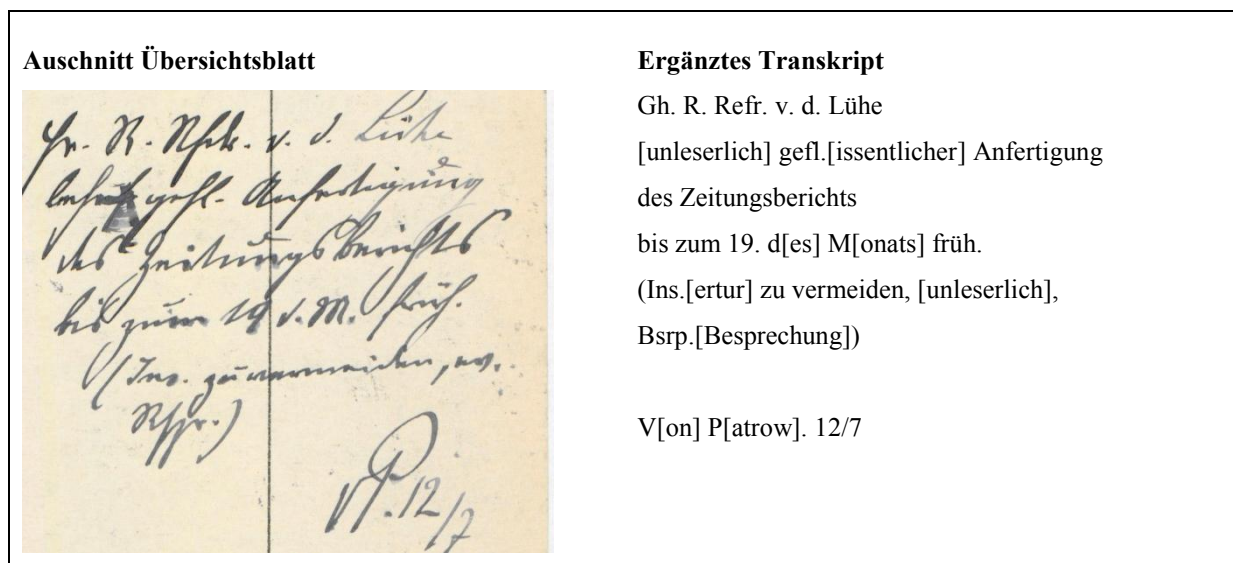 Auschnitt Übersichtsblatt
Hr. R. Rfdr. v. d. Lühe
behufs gefl. Anfertigung
des Zeitungsberichts
bis zum 19 d. M. früh.
(Ins. zu vermeiden, ev.
Rspr.)
vP. 12/7
Ergänztes Transkript
Gh. R. Refr. v. d. Lühe
[unleserlich] gefl.[issentlicher] Anfertigung
des Zeitungsberichts
bis zum 19. d[es] M[onats] früh.
(Ins.[ertur] zu vermeiden, [unleserlich],
Bsrp.[Besprechung])
V[on] P[atrow]. 12/7